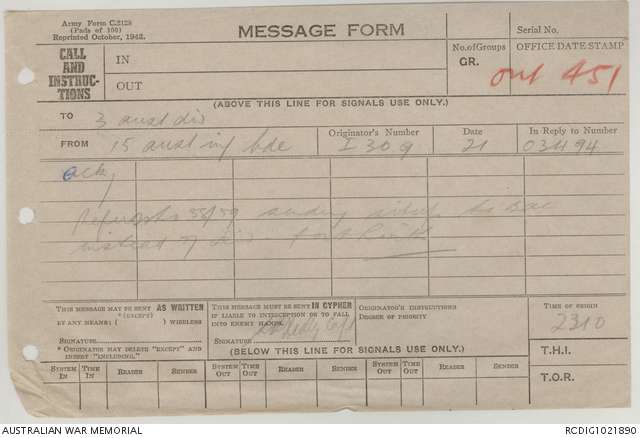 Army Form C.2128
(Pads of 100)
Reprinted October, 1942.
MESSAGE FORM
Serial No.
CALL AND INSTRUCTIONS
IN
OUT
No. of Groups
GR.
OFFICE DATE STAMP
out 451
(ABOVE THIS LINE FOR SIGNALS USE ONLY.)
TO 3 aust div
FROM 15 aust inf bde
Originator's Number
I 309
Date
21
In Reply to Number
03494
ack
58/59 sending
instead of div
THIS MESSAGE MAY BE SENT AS WRITTEN
*(EXCEPT)
BY ANY MEANS: ( ) WIRELESS
SIGNATURE
* ORIGINATOR MAY DELETE "EXCEPT" AND
INSERT "INCLUDING."
THIS MESSAGE MUST BE SENT IN CYPHER
IF LIABLE TO INTERCEPTION OR TO FALL
INTO ENEMY HANDS.
SIGNATURE Capt
ORIGINATOR'S INSTRUCTIONS
DEGREE OF PRIORITY
TIME OF ORIGIN
2310
(BELOW THIS LINE FOR SIGNALS USE ONLY.)
T.H.I.
SYSTEM IN TIME IN READER SENDER SYSTEM OUT TIME OUT READER SENDER SYSTEM OUT TIME OUT READER SENDER
T.O.R.
AUSTRALIAN WAR MEMORIAL
RCDIG1021890